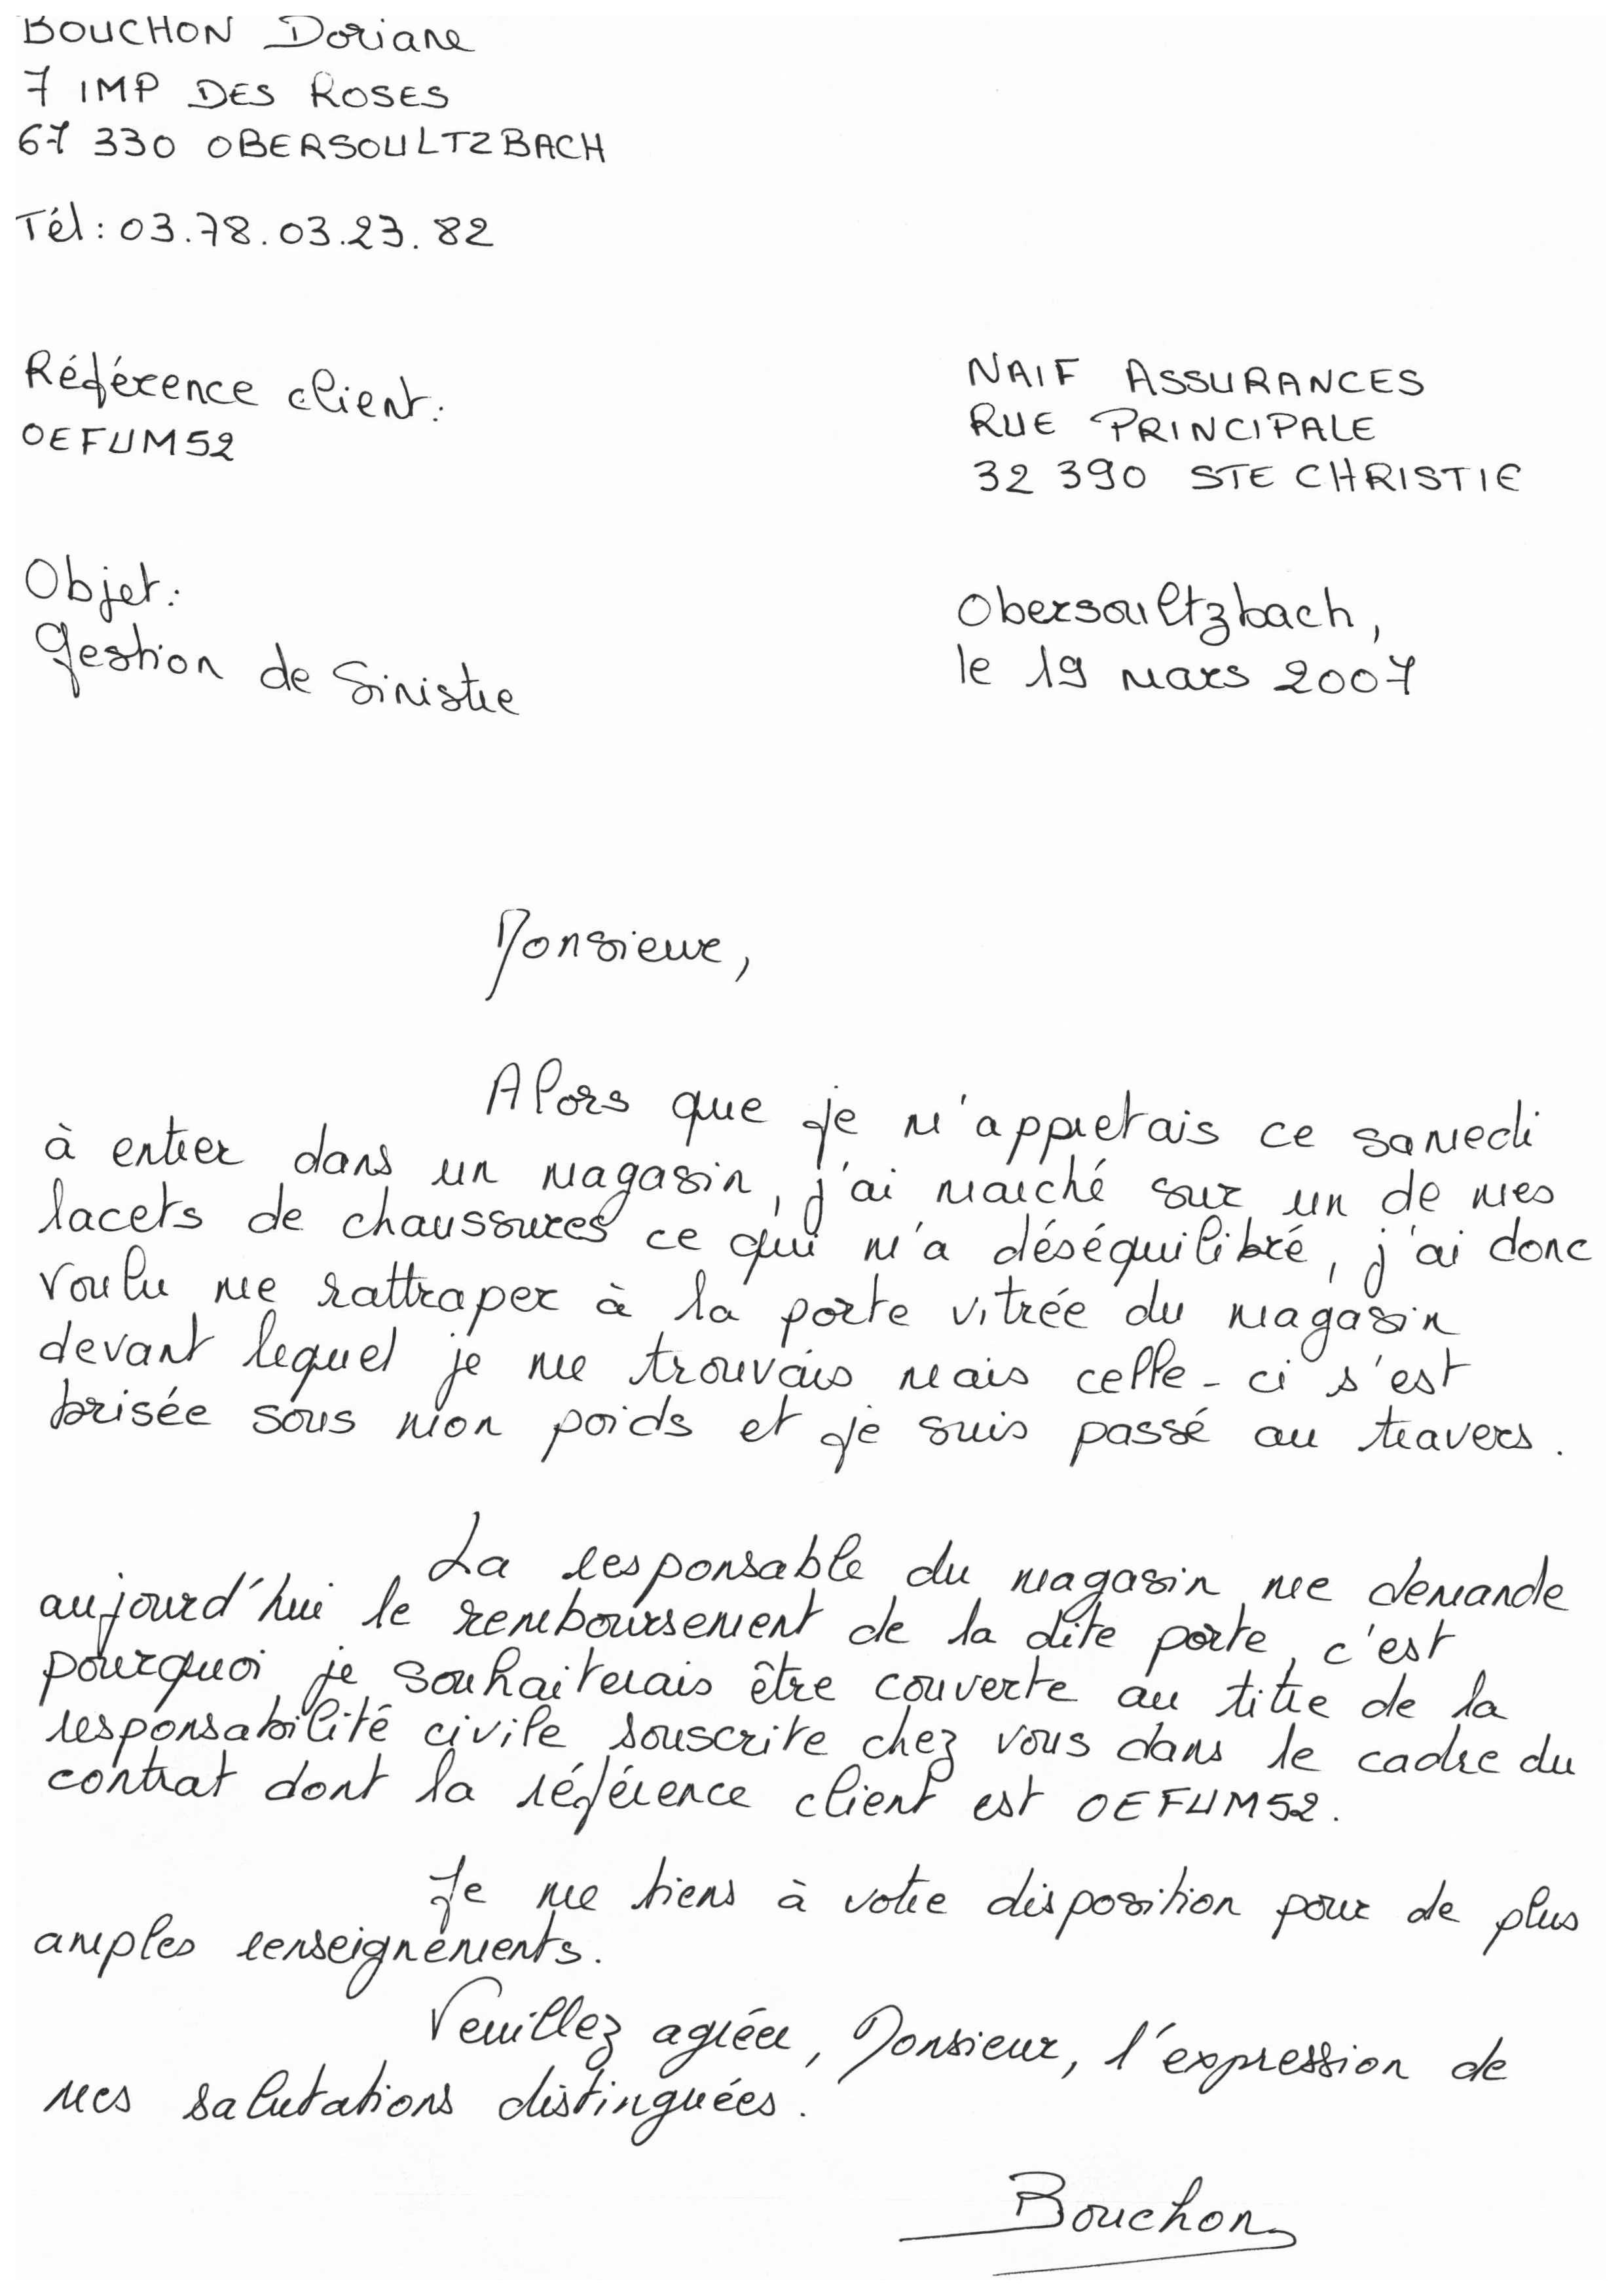 BOUCHON Doriane
7 IMP DES ROSES
67 330 OBERSOULTZBACH
Tél : 03.78.03.23.82
Référence client :
OEFUM52
NAIF ASSURANCES
RUE PRINCIPALE
32 390 STE CHRISTIE
Objet :
Gestion de Sinistre
Obersoultzbach,
le 19 mars 2007
Monsieur,
Alors que je m'appretais ce samedi
à entrer dans un magasin, j'ai marché sur un de mes
lacets de chaussures ce qui m'a déséquilibré, j'ai donc
voulu me rattraper à la porte vitrée du magasin
devant lequel je me trouvais mais celle-ci s'est
brisée sous mon poids et je suis passé au travers.
La responsable du magasin me demande
aujourd'hui le remboursement de la dite porte, c'est
pourquoi je souhaiterais être couverte au titre de la
responsabilité civile souscrite chez vous dans le cadre du
contrat dont la référence client est OEFUM52.
Je me tiens à votre disposition pour de plus
amples renseignements.
Veuillez agréer, Monsieur, l'expression de
mes salutations distinguées.
Bouchon